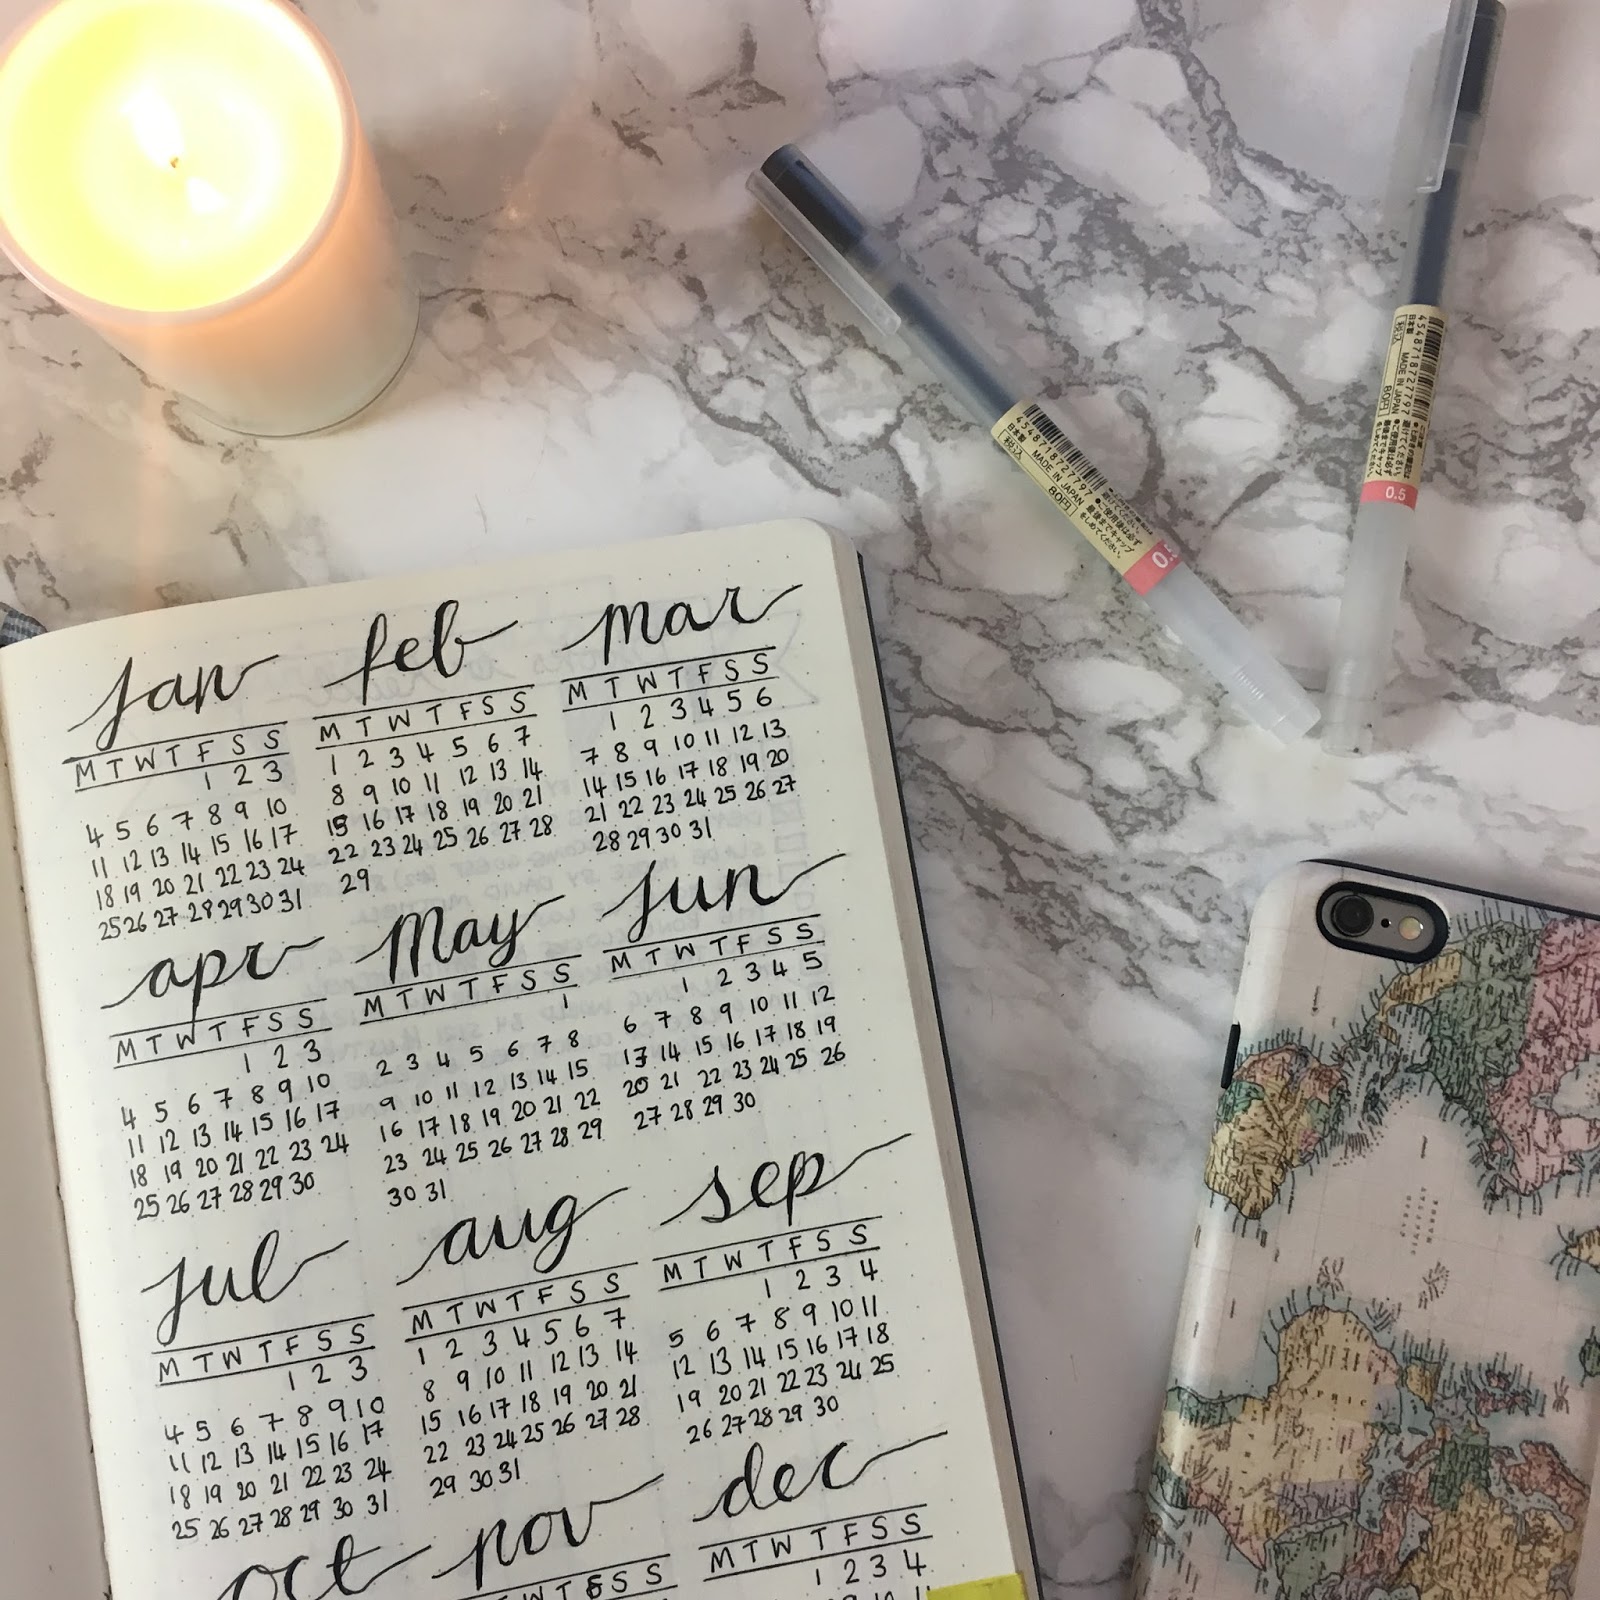 jan feb mar
M T W T F S S
1 2 3
4 5 6 7 8 9 10
11 12 13 14 15 16 17
18 19 20 21 22 23 24
25 26 27 28 29 30 31
M T W T F S S
1 2 3 4 5 6 7
8 9 10 11 12 13 14
15 16 17 18 19 20 21
22 23 24 25 26 27 28
29
M T W T F S S
1 2 3 4 5 6
7 8 9 10 11 12 13
14 15 16 17 18 19 20
21 22 23 24 25 26 27
28 29 30 31
apr may jun
M T W T F S S
1 2 3
4 5 6 7 8 9 10
11 12 13 14 15 16 17
18 19 20 21 22 23 24
25 26 27 28 29 30
M T W T F S S
1
2 3 4 5 6 7 8
9 10 11 12 13 14 15
16 17 18 19 20 21 22
23 24 25 26 27 28 29
30 31
M T W T F S S
1 2 3 4 5
6 7 8 9 10 11 12
13 14 15 16 17 18 19
20 21 22 23 24 25 26
27 28 29 30
jul aug sep
M T W T F S S
1 2 3
4 5 6 7 8 9 10
11 12 13 14 15 16 17
18 19 20 21 22 23 24
25 26 27 28 29 30 31
M T W T F S S
1 2 3 4 5 6 7
8 9 10 11 12 13 14
15 16 17 18 19 20 21
22 23 24 25 26 27 28
29 30 31
M T W T F S S
1 2 3 4
5 6 7 8 9 10 11
12 13 14 15 16 17 18
19 20 21 22 23 24 25
26 27 28 29 30
oct nov dec
W T F S S
M T W T F S S
1 2 3 4
4548718727797
日本製 MADE IN JAPAN
税込 80円
ご使用後は必ず
最後までキャップ
をしめてください。
0.5
4548718727797
日本製 MADE IN JAPAN
税込 80円
ご使用後は必ず
最後までキャップ
をしめてください。
0.5